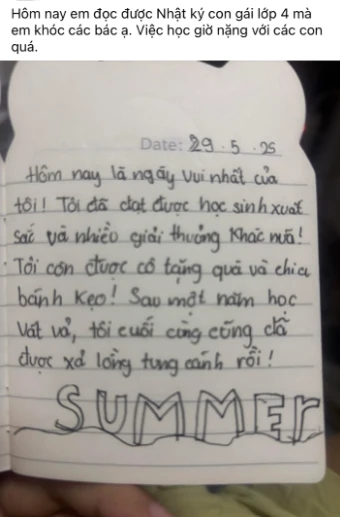 Hôm nay em đọc được Nhật ký con gái lớp 4 mà
em khóc các bác ạ. Việc học giờ nặng với các con
quá.
Date: 29 . 5 . 25
Hôm nay là ngày vui nhất của
tôi! Tôi đã đạt được học sinh xuất
sắc và nhiều giải thưởng khác nữa!
Tôi còn được cô tặng quà và chia
bánh kẹo! Sau một năm học
vất vả, tôi cuối cùng cũng đã
được xả lòng tung cánh rồi!
SUMMEr